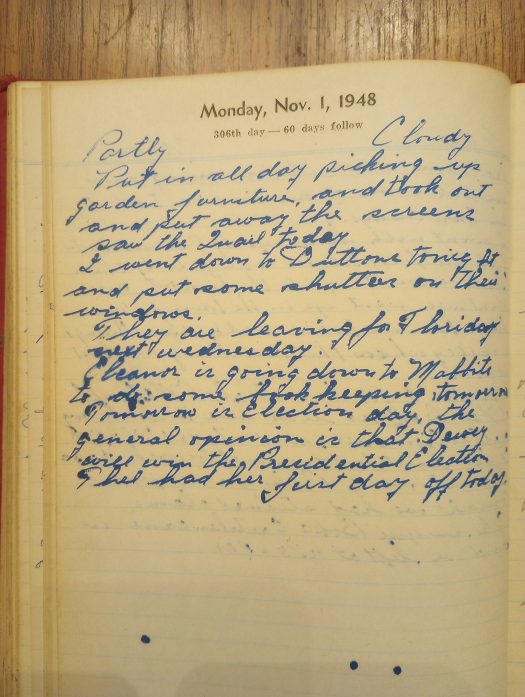 Monday, Nov. 1, 1948
306th day — 60 days follow
Partly Cloudy
Put in all day picking up
garden furniture, and took out
and put away the screens
saw the Quail today
I went down to Duttons to try fit
and put some shutters on their
windows.
They are leaving for Florida
next wednesday.
Eleanor is going down to Mabbits
to do some book keeping tomorrow
Tomorrow is Election day, the
general opinion is that Dewey
will win the Presidential Election
Thel had her first day off today.